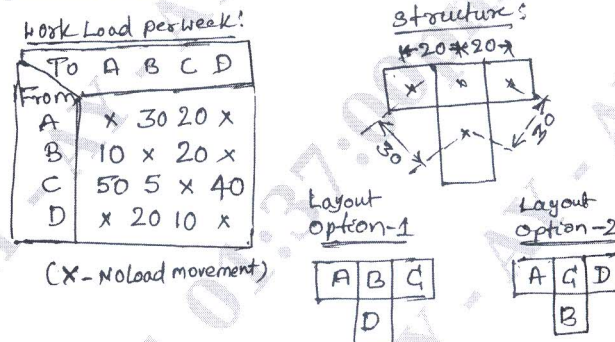 Work Load per week:
To A B C D
From
A x 30 20 x
B 10 x 20 x
C 50 5 x 40
D x 20 10 x
(x - No Load movement)
Structure:
20 20
x x x
30 x 30
Layout
Option-1
A B C
D
Layout
Option-2
A C D
B